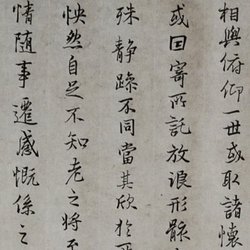 相與俯仰一世或取諸懷
或因寄所託放浪形骸
殊靜躁不同當其欣於所
怏然自足不知老之將至
情隨事遷感慨係之